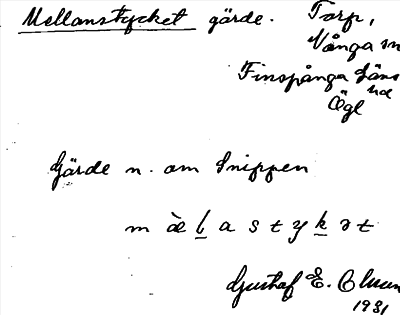 Mellanstycket gärde. Torp,
Vånga sn
Finspånga läns
hd
Ögl
Gärde n. om Snippen
m ä̀ l a s t y k ə t
Gustaf E.
1931